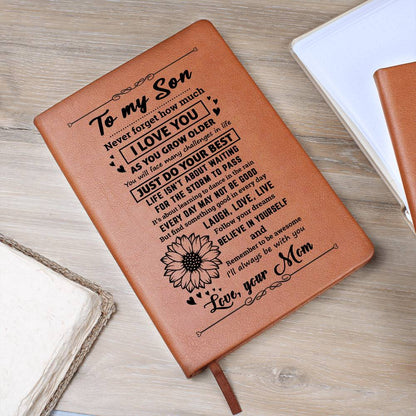 To my Son
Never forget how much
I LOVE YOU
AS YOU GROW OLDER
You will face many challenges in life
JUST DO YOUR BEST
LIFE ISN'T ABOUT WAITING
FOR THE STORM TO PASS
It's about learning to dance in the rain
EVERY DAY MAY NOT BE GOOD
But find something good in every day
LAUGH, LOVE, LIVE
Follow your dreams
BELIEVE IN YOURSELF
and
Remember to be awesome
I'll always be with you
Love, your Mom